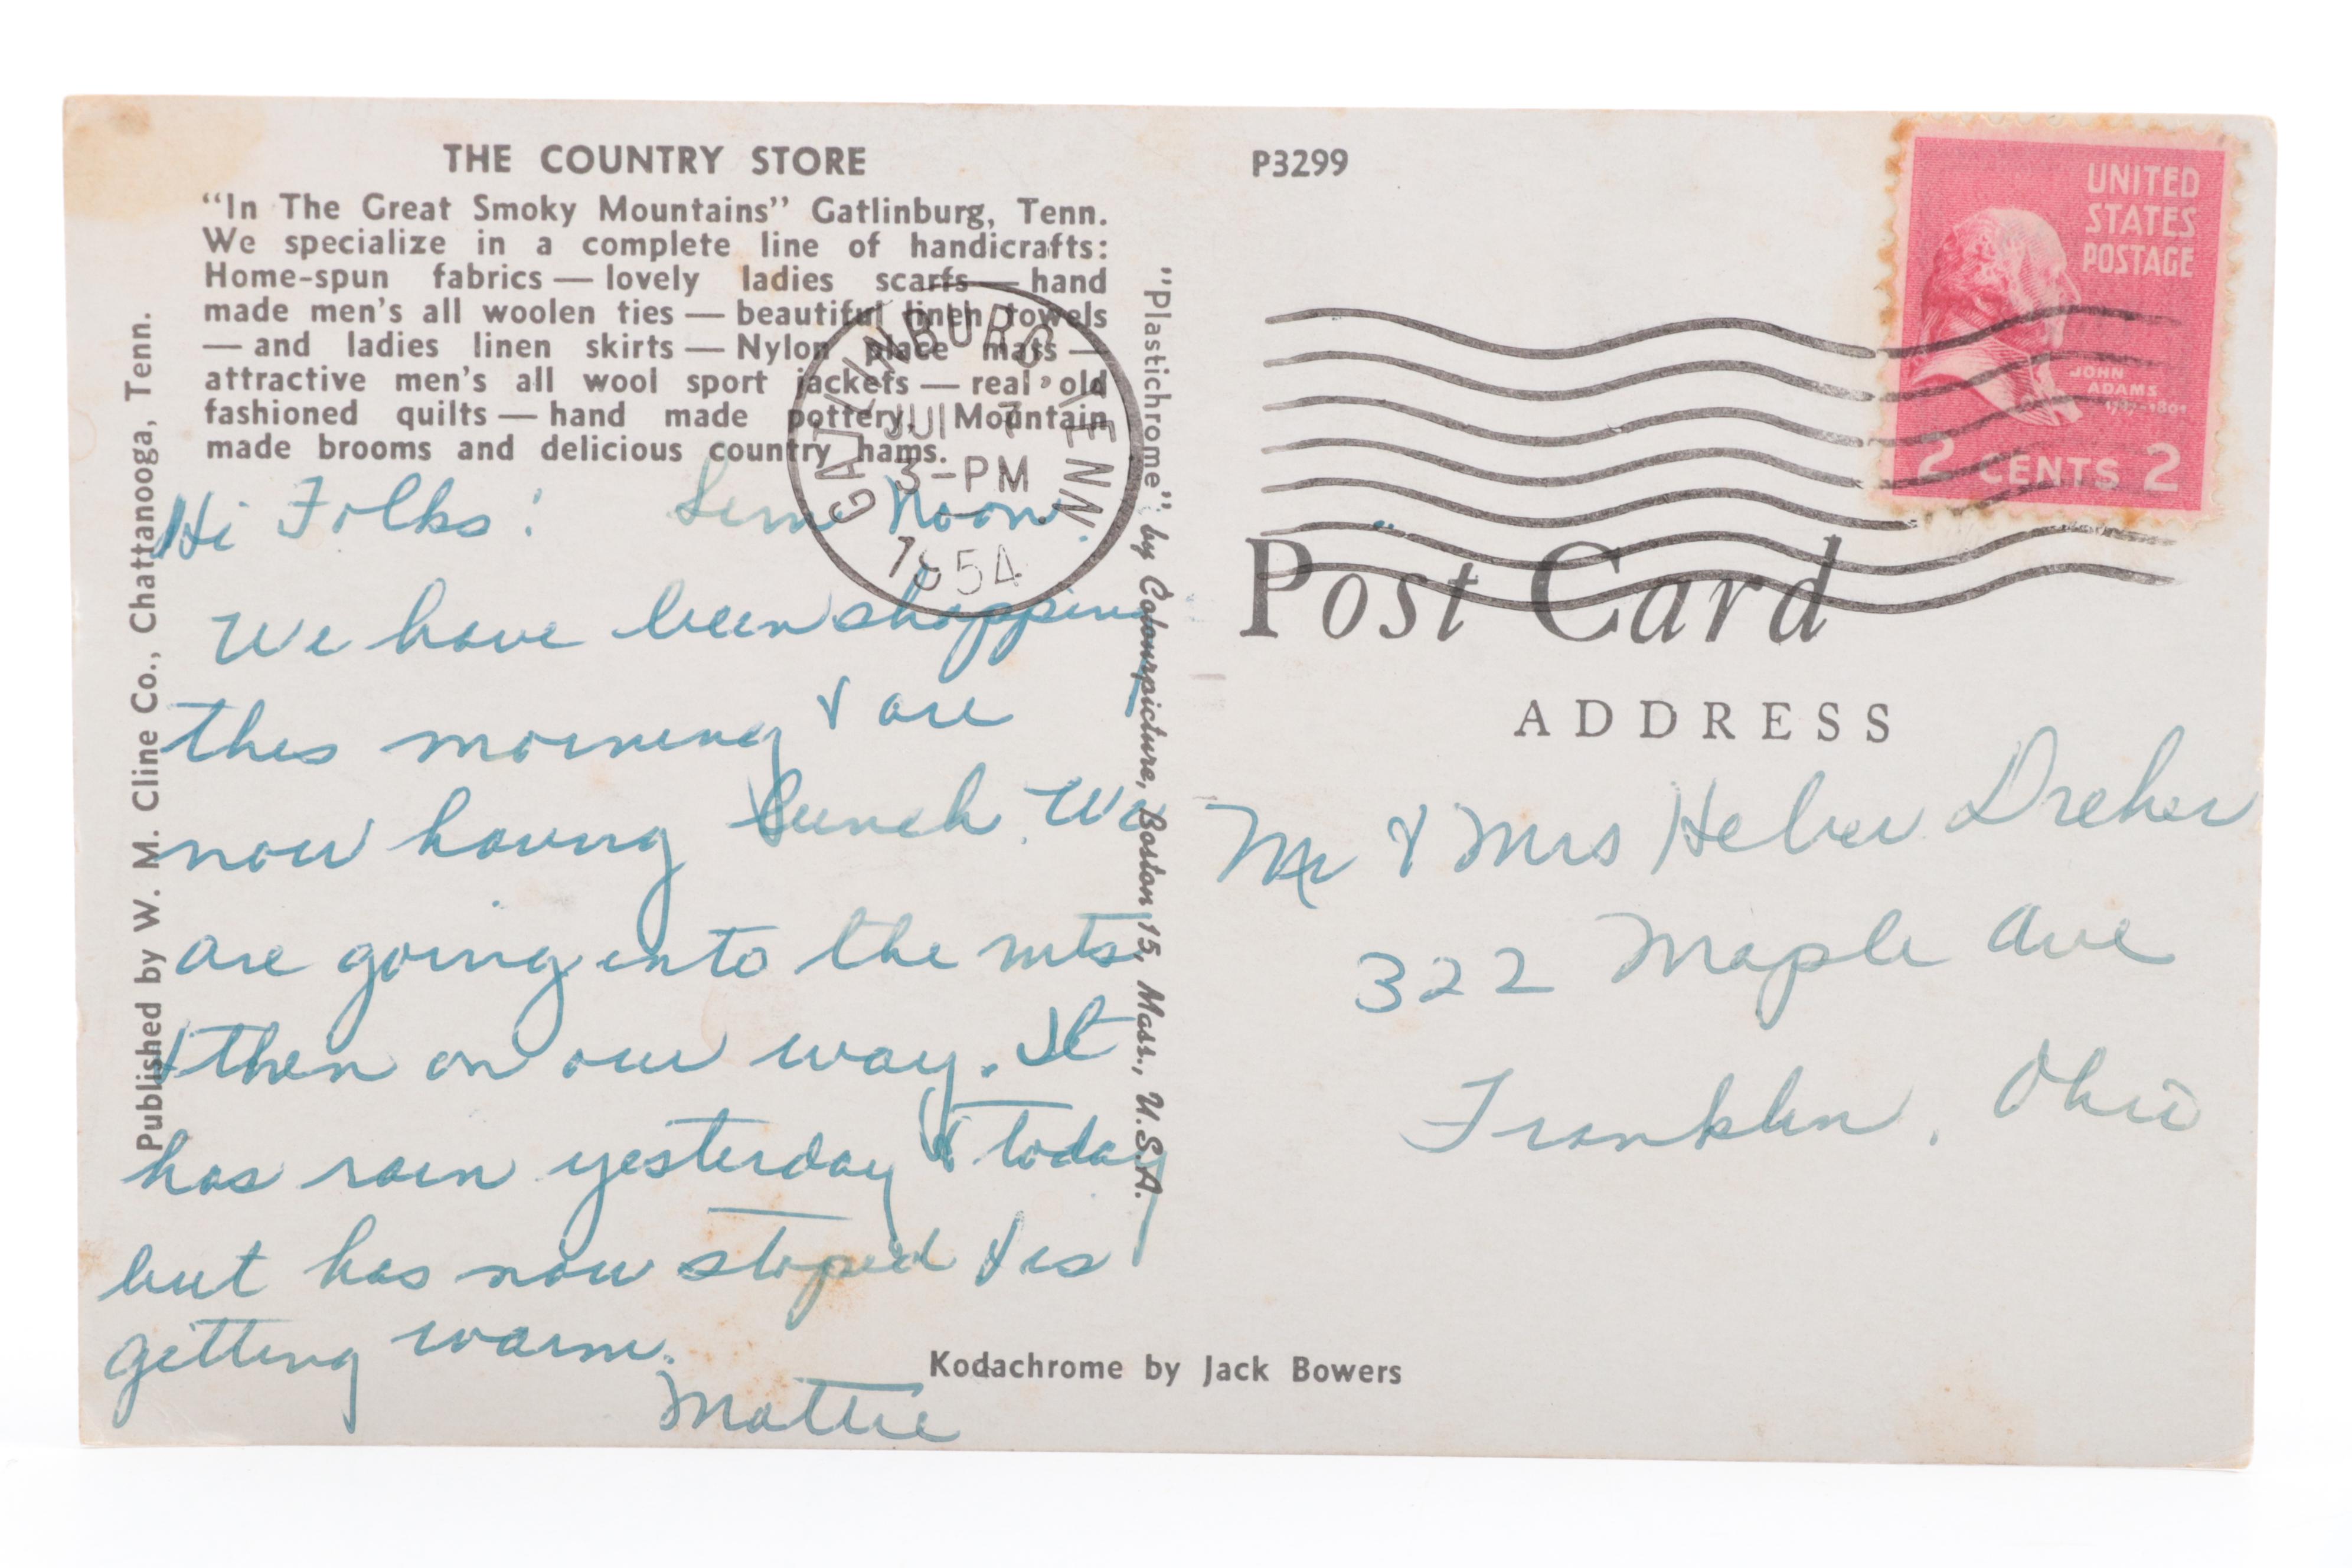 THE COUNTRY STORE
"In The Great Smoky Mountains" Gatlinburg, Tenn.
We specialize in a complete line of handicrafts:
Home-spun fabrics — lovely ladies scarfs — hand
made men's all woolen ties — beautiful linen towels
— and ladies linen skirts — Nylon place mats —
attractive men's all wool sport jackets — real old
fashioned quilts — hand made pottery, Mountain
made brooms and delicious country hams.
Published by W. M. Cline Co., Chattanooga, Tenn.
Hi Folks! Noon.
We have been shopping
this morning & are
now having lunch. We
are going into the mts
& then on our way. It
has rain yesterday & today
but has now stoped & is
getting warm.
Mattie
GATLINBURG TENN.
JUL 7
3-PM
1954
"Plastichrome" by Colourpicture, Boston 15, Mass., U.S.A.
P3299
UNITED
STATES
POSTAGE
JOHN
ADAMS
1797-1801
2 CENTS 2
Post Card
ADDRESS
Mr & Mrs Heber Dreher
322 Maple Ave
Franklin, Ohio
Kodachrome by Jack Bowers